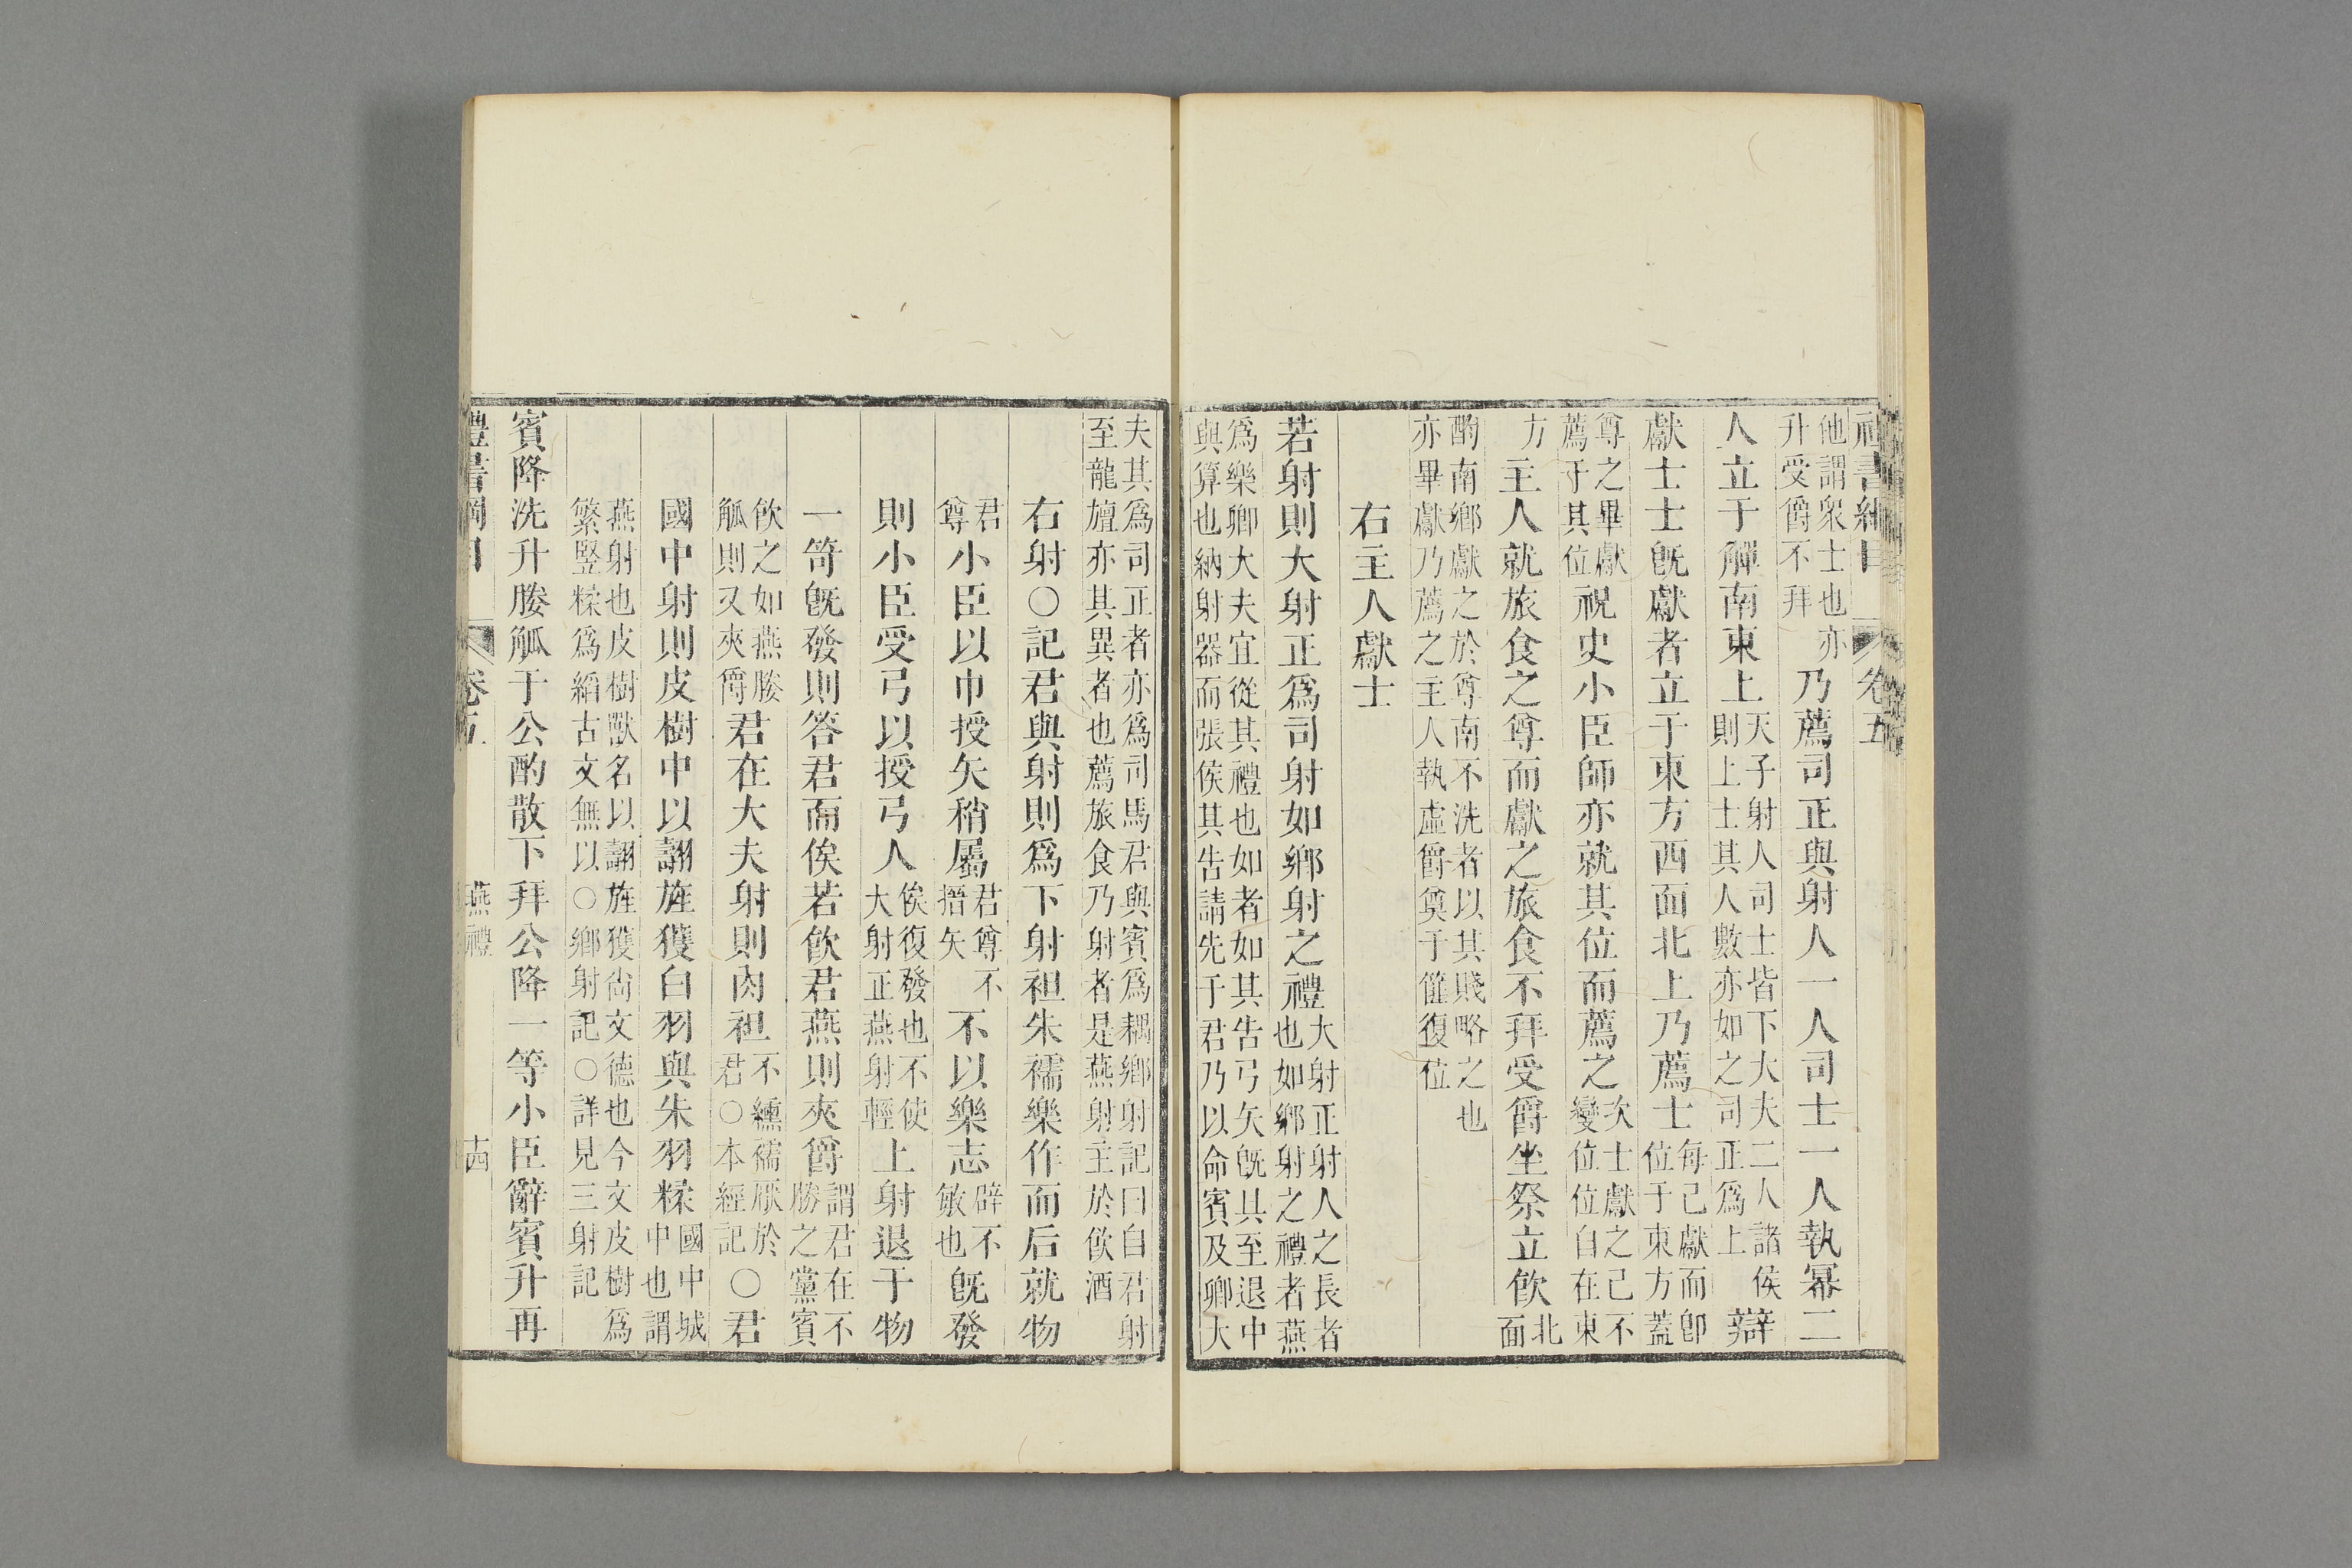 禮書綱目 卷五
他謂衆士也亦升受爵不拜乃薦司正與射人一人司士一人執冪二
人立于觶南東上天子射人司士皆下大夫二人諸侯則上士其人數亦如之司正爲上辯
獻士士旣獻者立于東方西面北上乃薦士每已獻而卽位于東方蓋
尊之畢獻薦于其位祝史小臣師亦就其位而薦之次士獻之已不變位位自在東
方主人就旅食之尊而獻之旅食不拜受爵坐祭立飮北面
酌南鄉獻之於尊南不洗者以其賤略之也亦畢獻乃薦之主人執虛爵奠于篚復位
右主人獻士
若射則大射正爲司射如鄉射之禮大射正射人之長者也如鄉射之禮者燕
爲樂卿大夫宜從其禮也如者如其告弓矢旣具至退中與算也納射器而張侯其告請先于君乃以命賓及卿大
夫其爲司正者亦爲司馬君與賓爲耦鄉射記曰自君射至龍旜亦其異者也薦旅食乃射者是燕射主於飮酒
右射○記君與射則爲下射袒朱襦樂作而后就物
君尊小臣以巾授矢稍屬君尊不搢矢不以樂志辟不敏也旣發
則小臣受弓以授弓人俟復發也不使大射正燕射輕上射退于物
一笴旣發則答君而俟若飮君燕則夾爵謂君在不勝之黨賓
飮之如燕媵觚則又夾爵君在大夫射則肉袒不纁襦厭於君○本經記○君
國中射則皮樹中以翿旌獲白羽與朱羽糅國中城中也謂
燕射也皮樹獸名以翿旌獲尙文德也今文皮樹爲繁豎糅爲縚古文無以○鄉射記○詳見三射記
賓降洗升媵觚于公酌散下拜公降一等小臣辭賓升再
禮書綱目 卷五 燕禮 十四